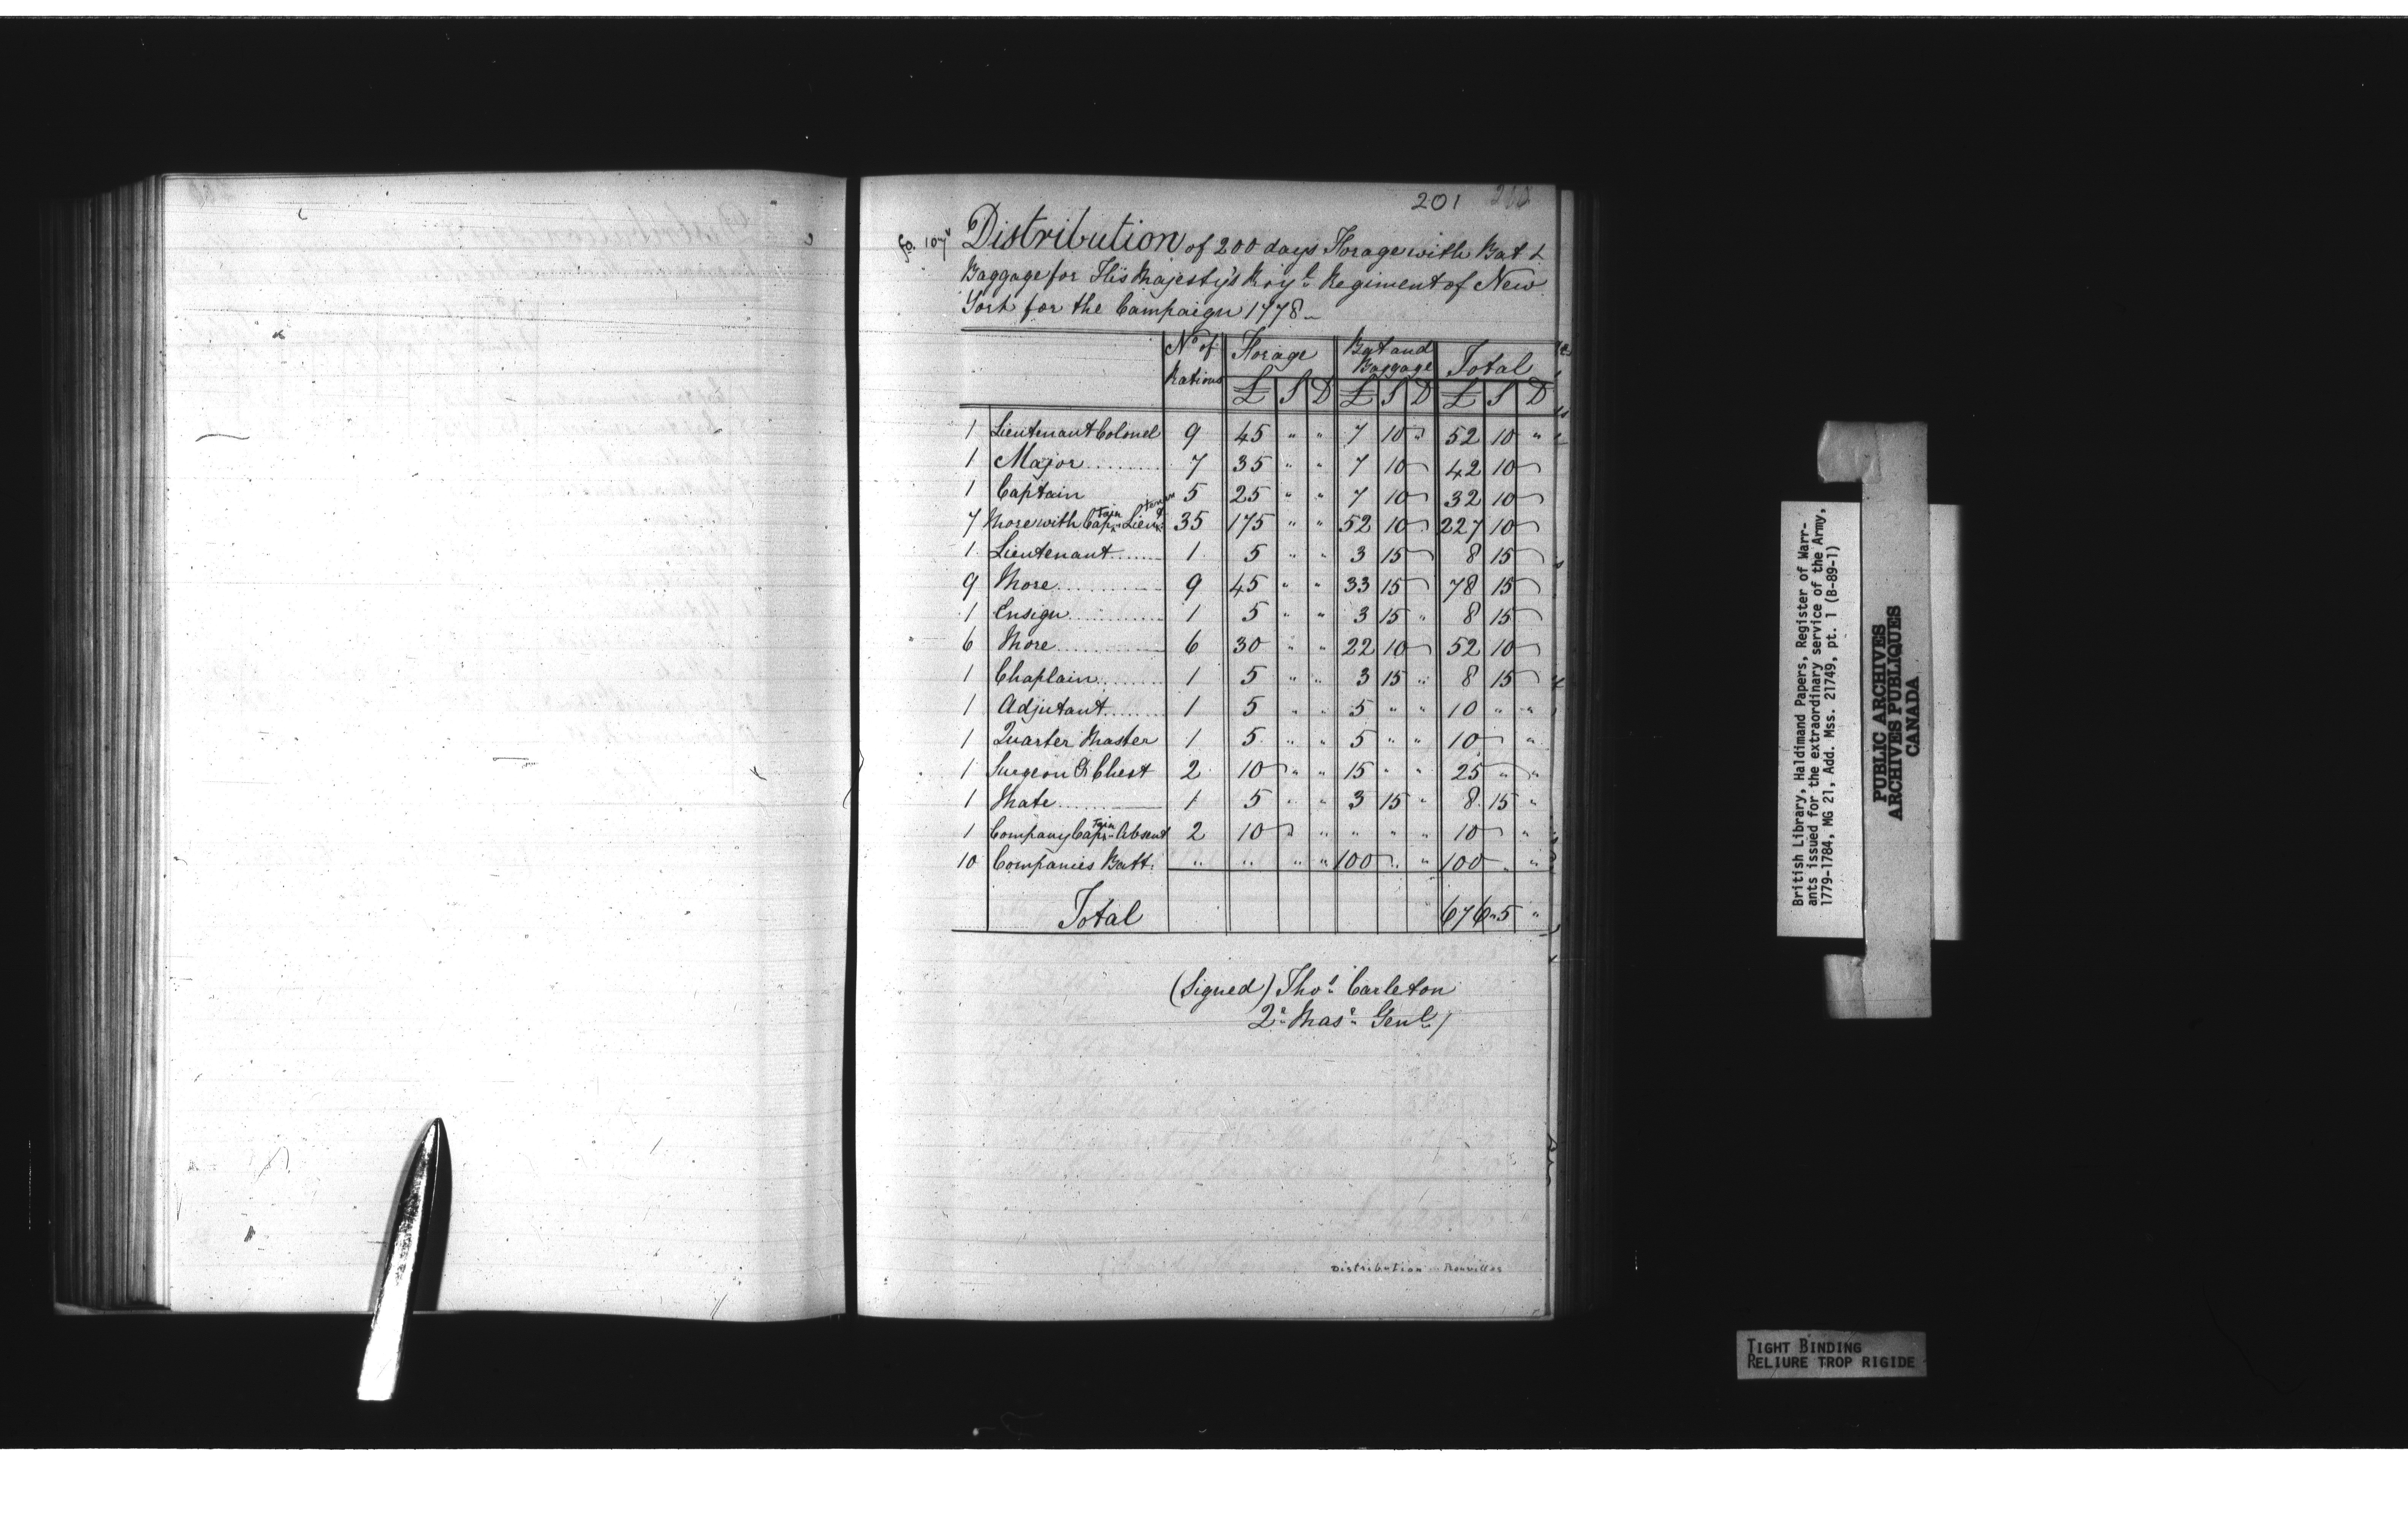 201
fo. 107v Distribution of 200 days Forage with Bat &
Baggage for His Majesty's Roy.l Regiment of New
York for the Campaign 1778
No. of Rations | Forage | Bat and Baggage | Total
£ S D | £ S D | £ S D
1 Lieutenant Colonel 9 45 " " 7 10 " 52 10 "
1 Major 7 35 " " 7 10 42 10
1 Captain 5 25 " " 7 10 32 10
7 More with Captain Lieutenant 35 175 " " 52 10 227 10
1 Lieutenant 1 5 " " 3 15 8 15
9 More 9 45 " " 33 15 78 15
1 Ensign 1 5 " " 3 15 " 8 15
6 More 6 30 " " 22 10 52 10
1 Chaplain 1 5 " " 3 15 " 8 15
1 Adjutant 1 5 " " 5 " " 10 " "
1 Quarter Master 1 5 " " 5 " " 10 "
1 Surgeon & Chest 2 10 " " 15 " " 25 " "
1 Mate 1 5 " " 3 15 " 8 15 "
1 Company Captain Absent 2 10 " " " " 10 "
10 Companies Batt. " " " " 100 " " 100 " "
Total 676 " 5 "
(Signed) Tho.s Carleton
Q.r Mas.r Gen.l)
Distribution
British Library, Haldimand Papers, Register of Warr-
ants issued for the extraordinary service of the Army,
1779-1784, MG 21, Add. Mss. 21749, pt. 1 (B-89-1)
PUBLIC ARCHIVES
ARCHIVES PUBLIQUES
CANADA
TIGHT BINDING
RELIURE TROP RIGIDE